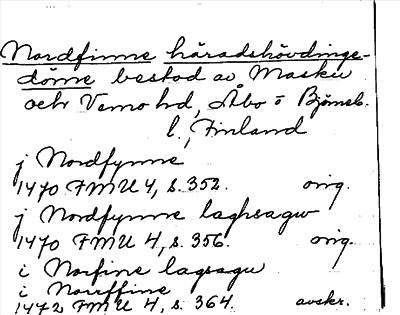 Nordfinne häradshövdinge-
döme bestod av Masku
och Vemo hd, Åbo o Björneb.
l., Finland
j Nordfynne
1470 FMU 4, s. 352. orig.
j Nordfynne laghsagw
1470 FMU 4, s. 356. orig.
i Norfine lagsagu
i Norrffine
1472 FMU 4, s. 364. avskr.